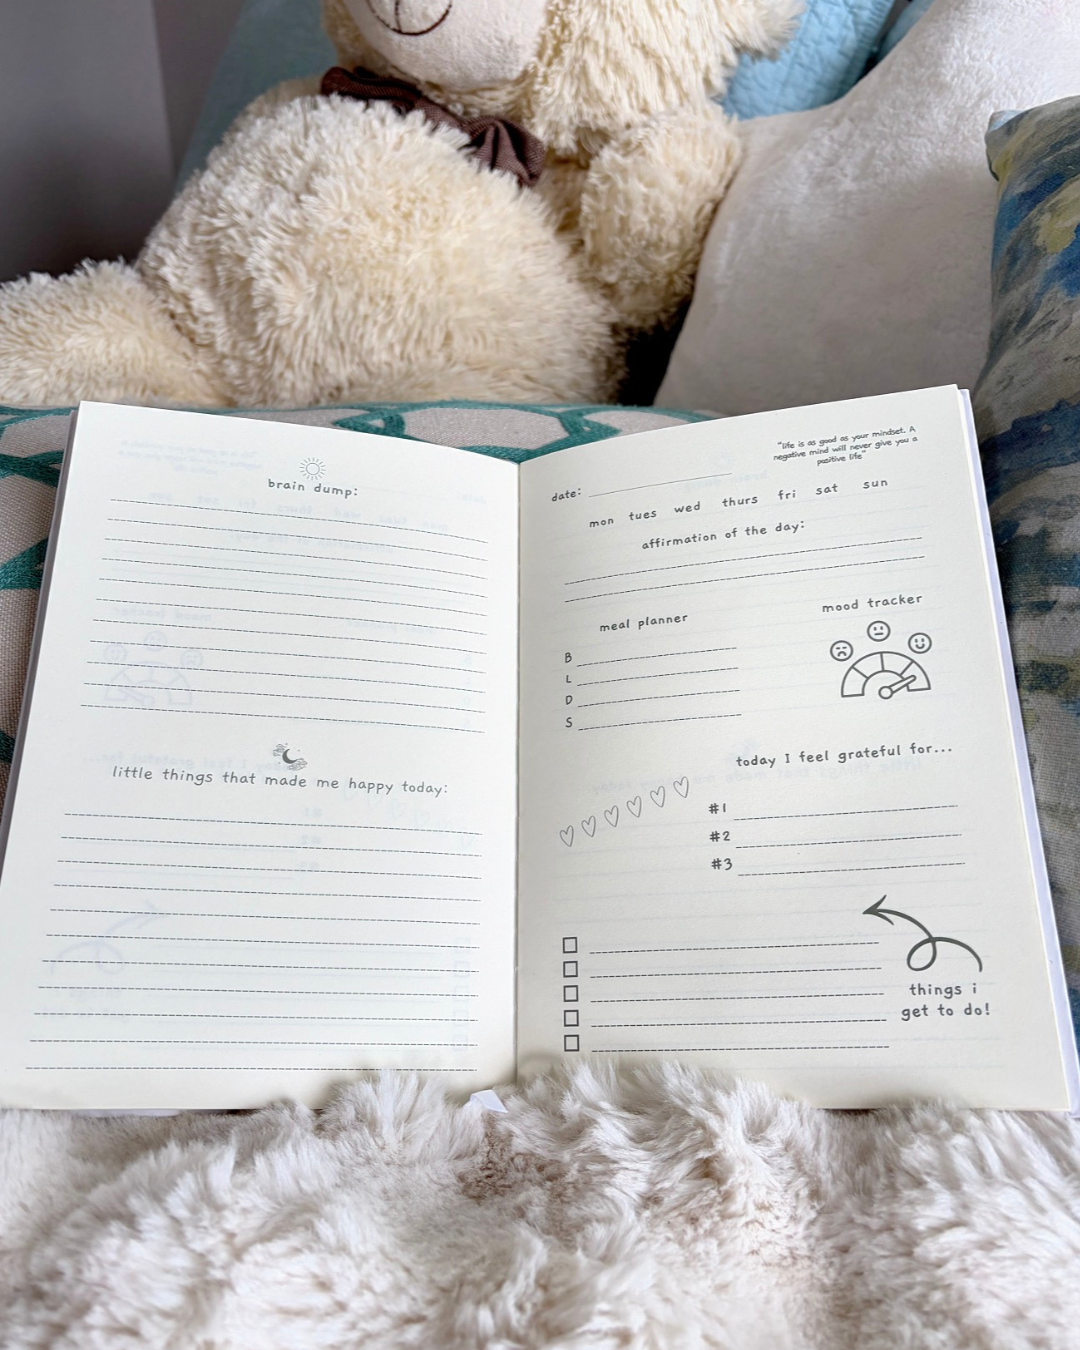 brain dump:
little things that made me happy today:
"life is as good as your mindset. A
negative mind will never give you a
positive life"
date:
mon tues wed thurs fri sat sun
affirmation of the day:
meal planner
B
L
D
S
mood tracker
today I feel grateful for...
#1
#2
#3
things i
get to do!